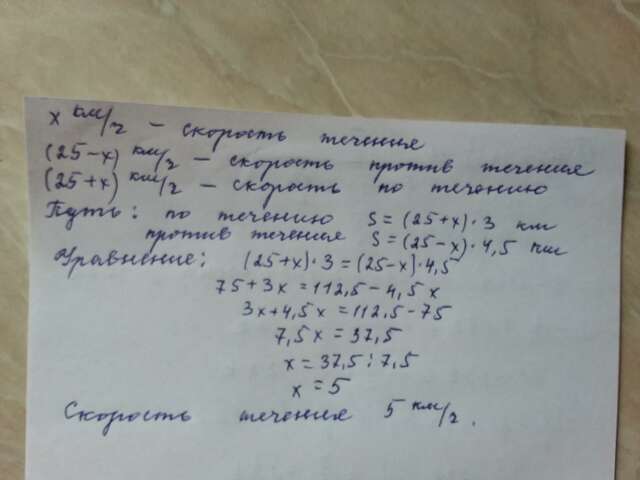 x км/ч – скорость течения
(25-x) км/ч – скорость против течения
(25+x) км/ч – скорость по течению
Путь: по течению S = (25+x)·3 км
против течения S = (25-x)·4,5 км
Уравнение: (25+x)·3 = (25-x)·4,5
75+3x = 112,5 - 4,5x
3x+4,5x = 112,5-75
7,5x = 37,5
x = 37,5:7,5
x = 5
Скорость течения 5 км/ч.